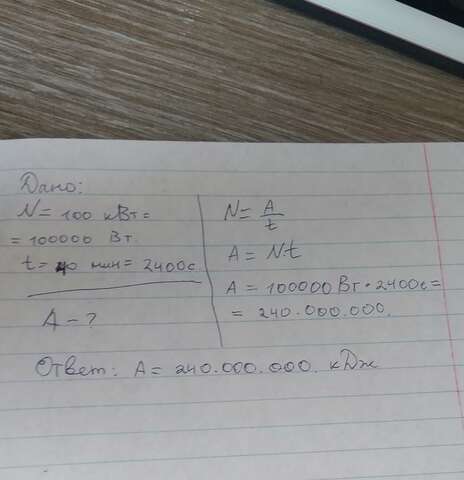 Дано:
N = 100 кВт =
= 100000 Вт
t = 40 мин = 2400с
A - ?
N = A/t
A = N·t
A = 100000 Вт · 2400с =
= 240.000.000.
Ответ: A = 240.000.000. кДж